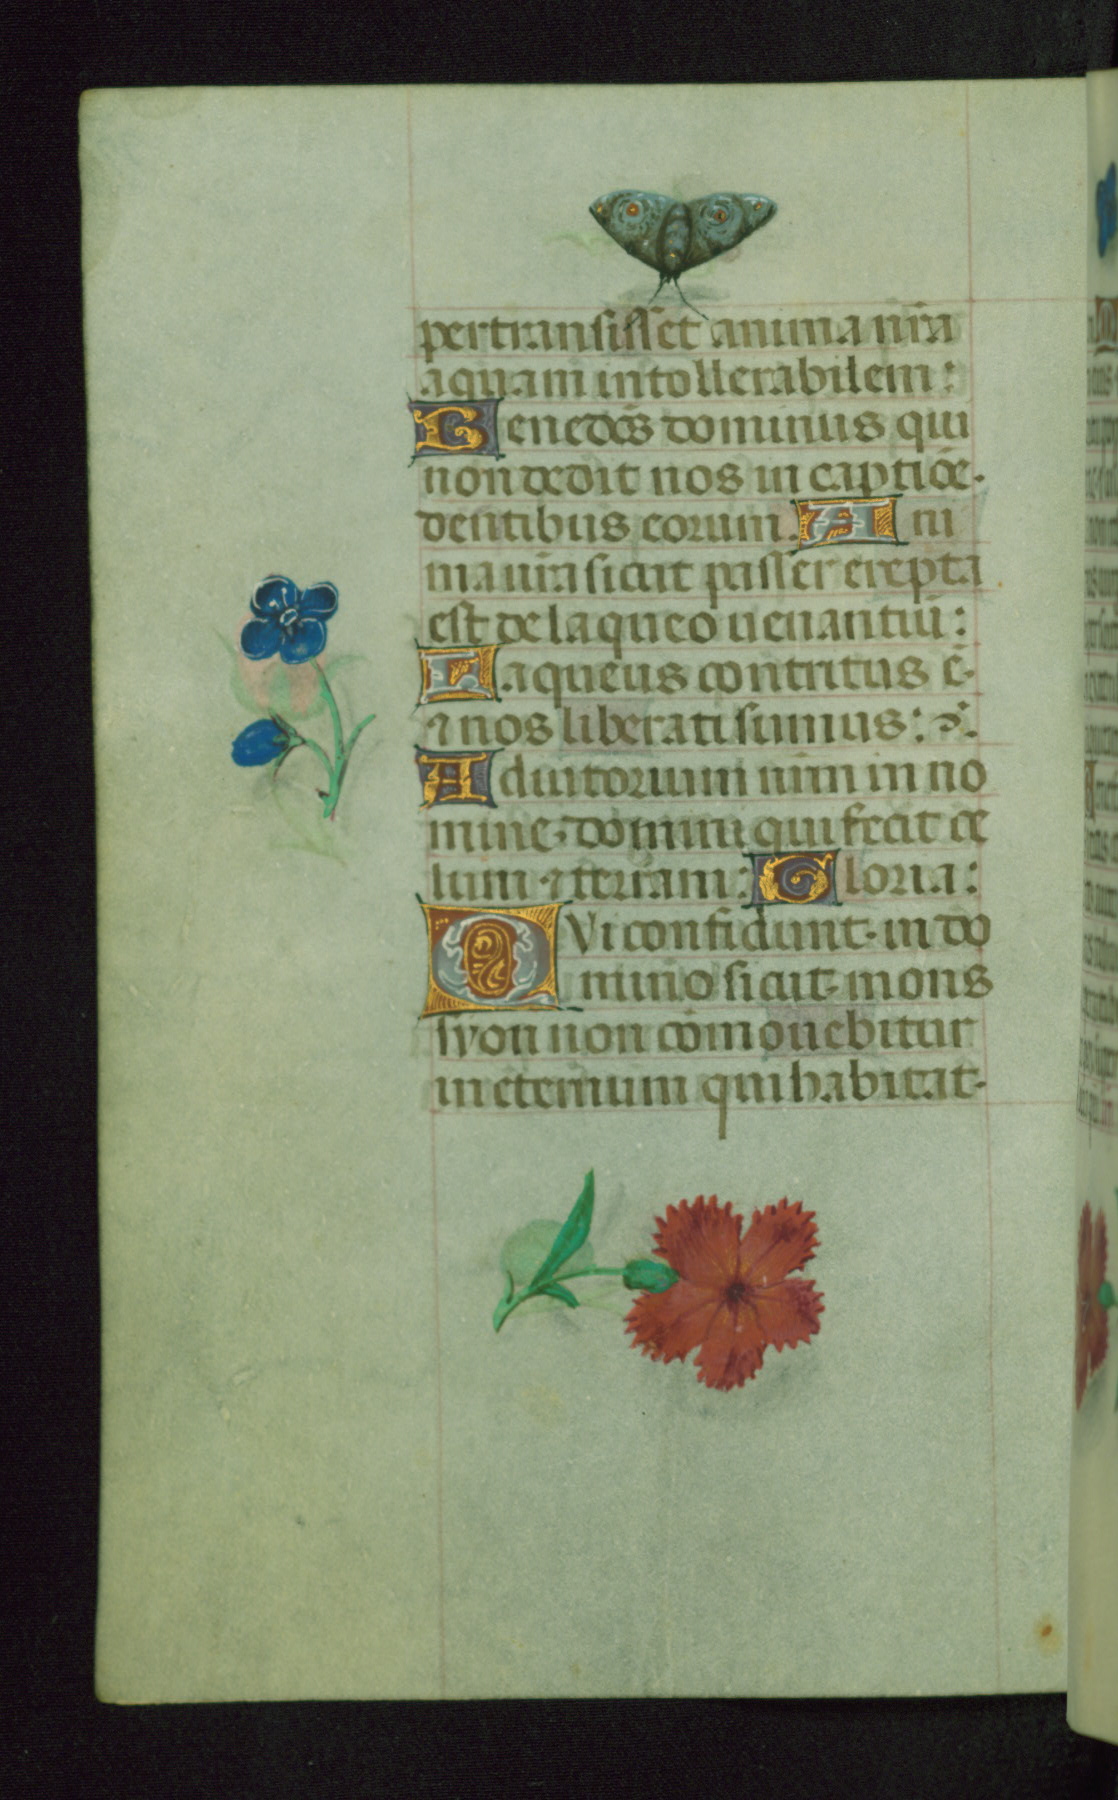 pertransisset anima nr̄a
aquam intollerabilem:
Benedc̄s dominus qui
non dedit nos in captioē.
dentibus eorum. A ni
ma nr̄a sicut passer erepta
est de laqueo uenantiū:
Laqueus contritus ē.
⁊ nos liberati sumus:
Adiutorium nr̄m in no
mine domini qui fecit ce
lum ⁊ terram: Gloria:
QVi confidunt in do
mino sicut mons
syon non cōmouebitur
in eternum qui habitat.